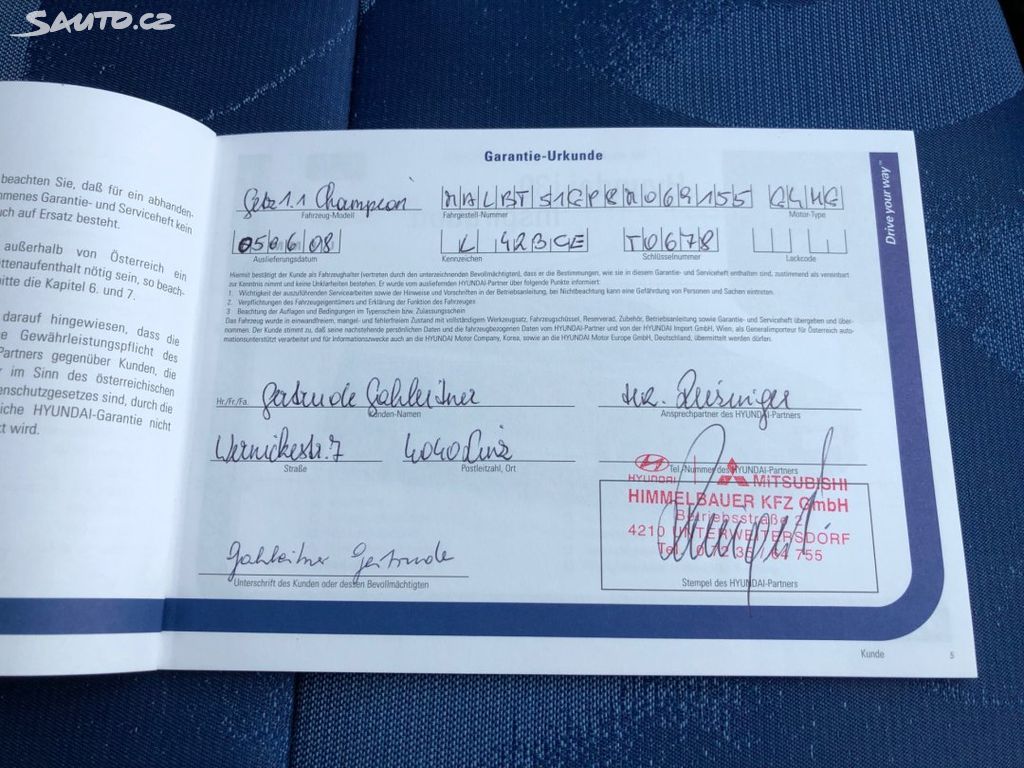 SAUTO.CZ
beachten Sie, daß für ein abhanden-
mmenes Garantie- und Serviceheft kein
uch auf Ersatz besteht.
außerhalb von Österreich ein
ttenaufenthalt nötig sein, so beach-
itte die Kapitel 6. und 7.
darauf hingewiesen, dass die
e Gewährleistungspflicht des
Partners gegenüber Kunden, die
r im Sinn des österreichischen
enschutzgesetzes sind, durch die
eiche HYUNDAI-Garantie nicht
t wird.
Garantie-Urkunde
Getz 1.1 Champion
Fahrzeug-Modell Fahrgestell-Nummer Motor-Type
050608 T0678
Auslieferungsdatum Kennzeichen Schlüsselnummer Lackcode
Hiermit bestätigt der Kunde als Fahrzeughalter (vertreten durch den unterzeichnenden Bevollmächtigten), dass er die Bestimmungen, wie sie in diesem Garantie- und Serviceheft enthalten sind, zustimmend als vereinbart
zur Kenntnis nimmt und keine Unklarheiten bestehen. Er wurde vom ausliefernden HYUNDAI-Partner über folgende Punkte informiert:
1. Wichtigkeit der auszuführenden Servicearbeiten sowie der Hinweise und Vorschriften in der Betriebsanleitung, bei Nichtbeachtung kann eine Gefährdung von Personen und Sachen eintreten.
2. Verpflichtungen des Fahrzeugeigentümers und Erklärung der Funktion des Fahrzeuges
3 Beachtung der Auflagen und Bedingungen im Typenschein bzw. Zulassungsschein
Das Fahrzeug wurde in einwandfreiem, mangel- und fehlerfreiem Zustand mit vollständigem Werkzeugsatz, Fahrzeugschlüssel, Reserverad, Zubehör, Betriebsanleitung sowie Garantie- und Serviceheft übergeben und über-
nommen. Der Kunde stimmt zu, daß seine nachstehende persönlichen Daten und die fahrzeugbezogenen Daten vom HYUNDAI-Partner und von der HYUNDAI Import GmbH, Wien, als Generalimporteur für Österreich auto-
mationsunterstützt verarbeitet und für Informationszwecke auch an die HYUNDAI Motor Company, Korea, sowie an die HYUNDAI Motor Europe GmbH, Deutschland, übermittelt werden dürfen.
Hr./Fr./Fa. Gertrude Gahleitner
Kunden-Namen Ansprechpartner des HYUNDAI-Partners
Wernickestr. 7 4040 Linz
Straße Postleitzahl, Ort Tel.-Nummer des HYUNDAI-Partners
HYUNDAI MITSUBISHI
HIMMELBAUER KFZ GmbH
Betriebsstraße 2
4210 UNTERWEITERSDORF
Gahleitner Gertrude
Unterschrift des Kunden oder dessen Bevollmächtigten Stempel des HYUNDAI-Partners
Drive your way™
Kunde 5